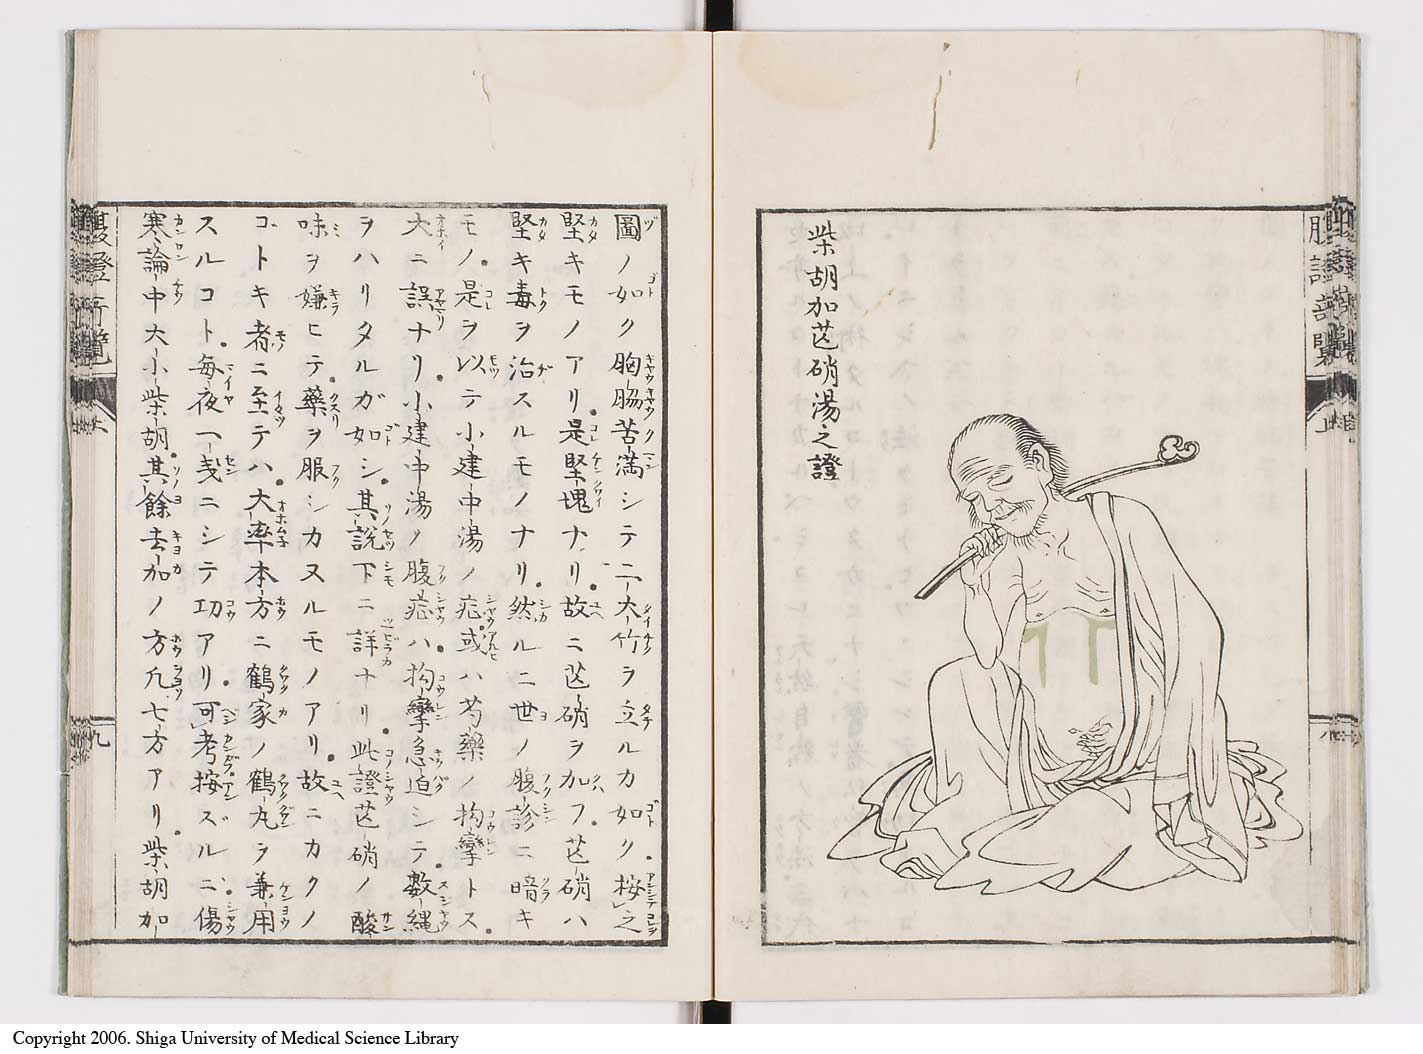 柴胡加芒硝湯之證
圖ノ如ク胸脇苦滿シテ二大竹ヲ立ルカ如ク按之
堅キモノアリ是堅塊ナリ故ニ芒硝ヲ加フ芒硝ハ
堅キ毒ヲ治スルモノナリ然ルニ世ノ腹診ニ暗キ
モノ是ヲ以テ小建中湯ノ症或ハ芍藥ノ拘攣トス
大ニ誤ナリ小建中湯ノ腹症ハ拘攣急迫シテ數縄
ヲハリタルガ如シ其説下ニ詳ナリ此證芒硝ノ酸
味ヲ嫌ヒテ藥ヲ服シカヌルモノアリ故ニカクノ
ゴトキ者ニ至テハ大率本方ニ鶴家ノ鶴丸ヲ兼用
スルコト毎夜一戔ニシテ功アリ可考按ズルニ傷
寒論中大小柴胡其餘去加ノ方凡七方アリ柴胡加
腹證奇覽
九
Copyright 2006. Shiga University of Medical Science Library